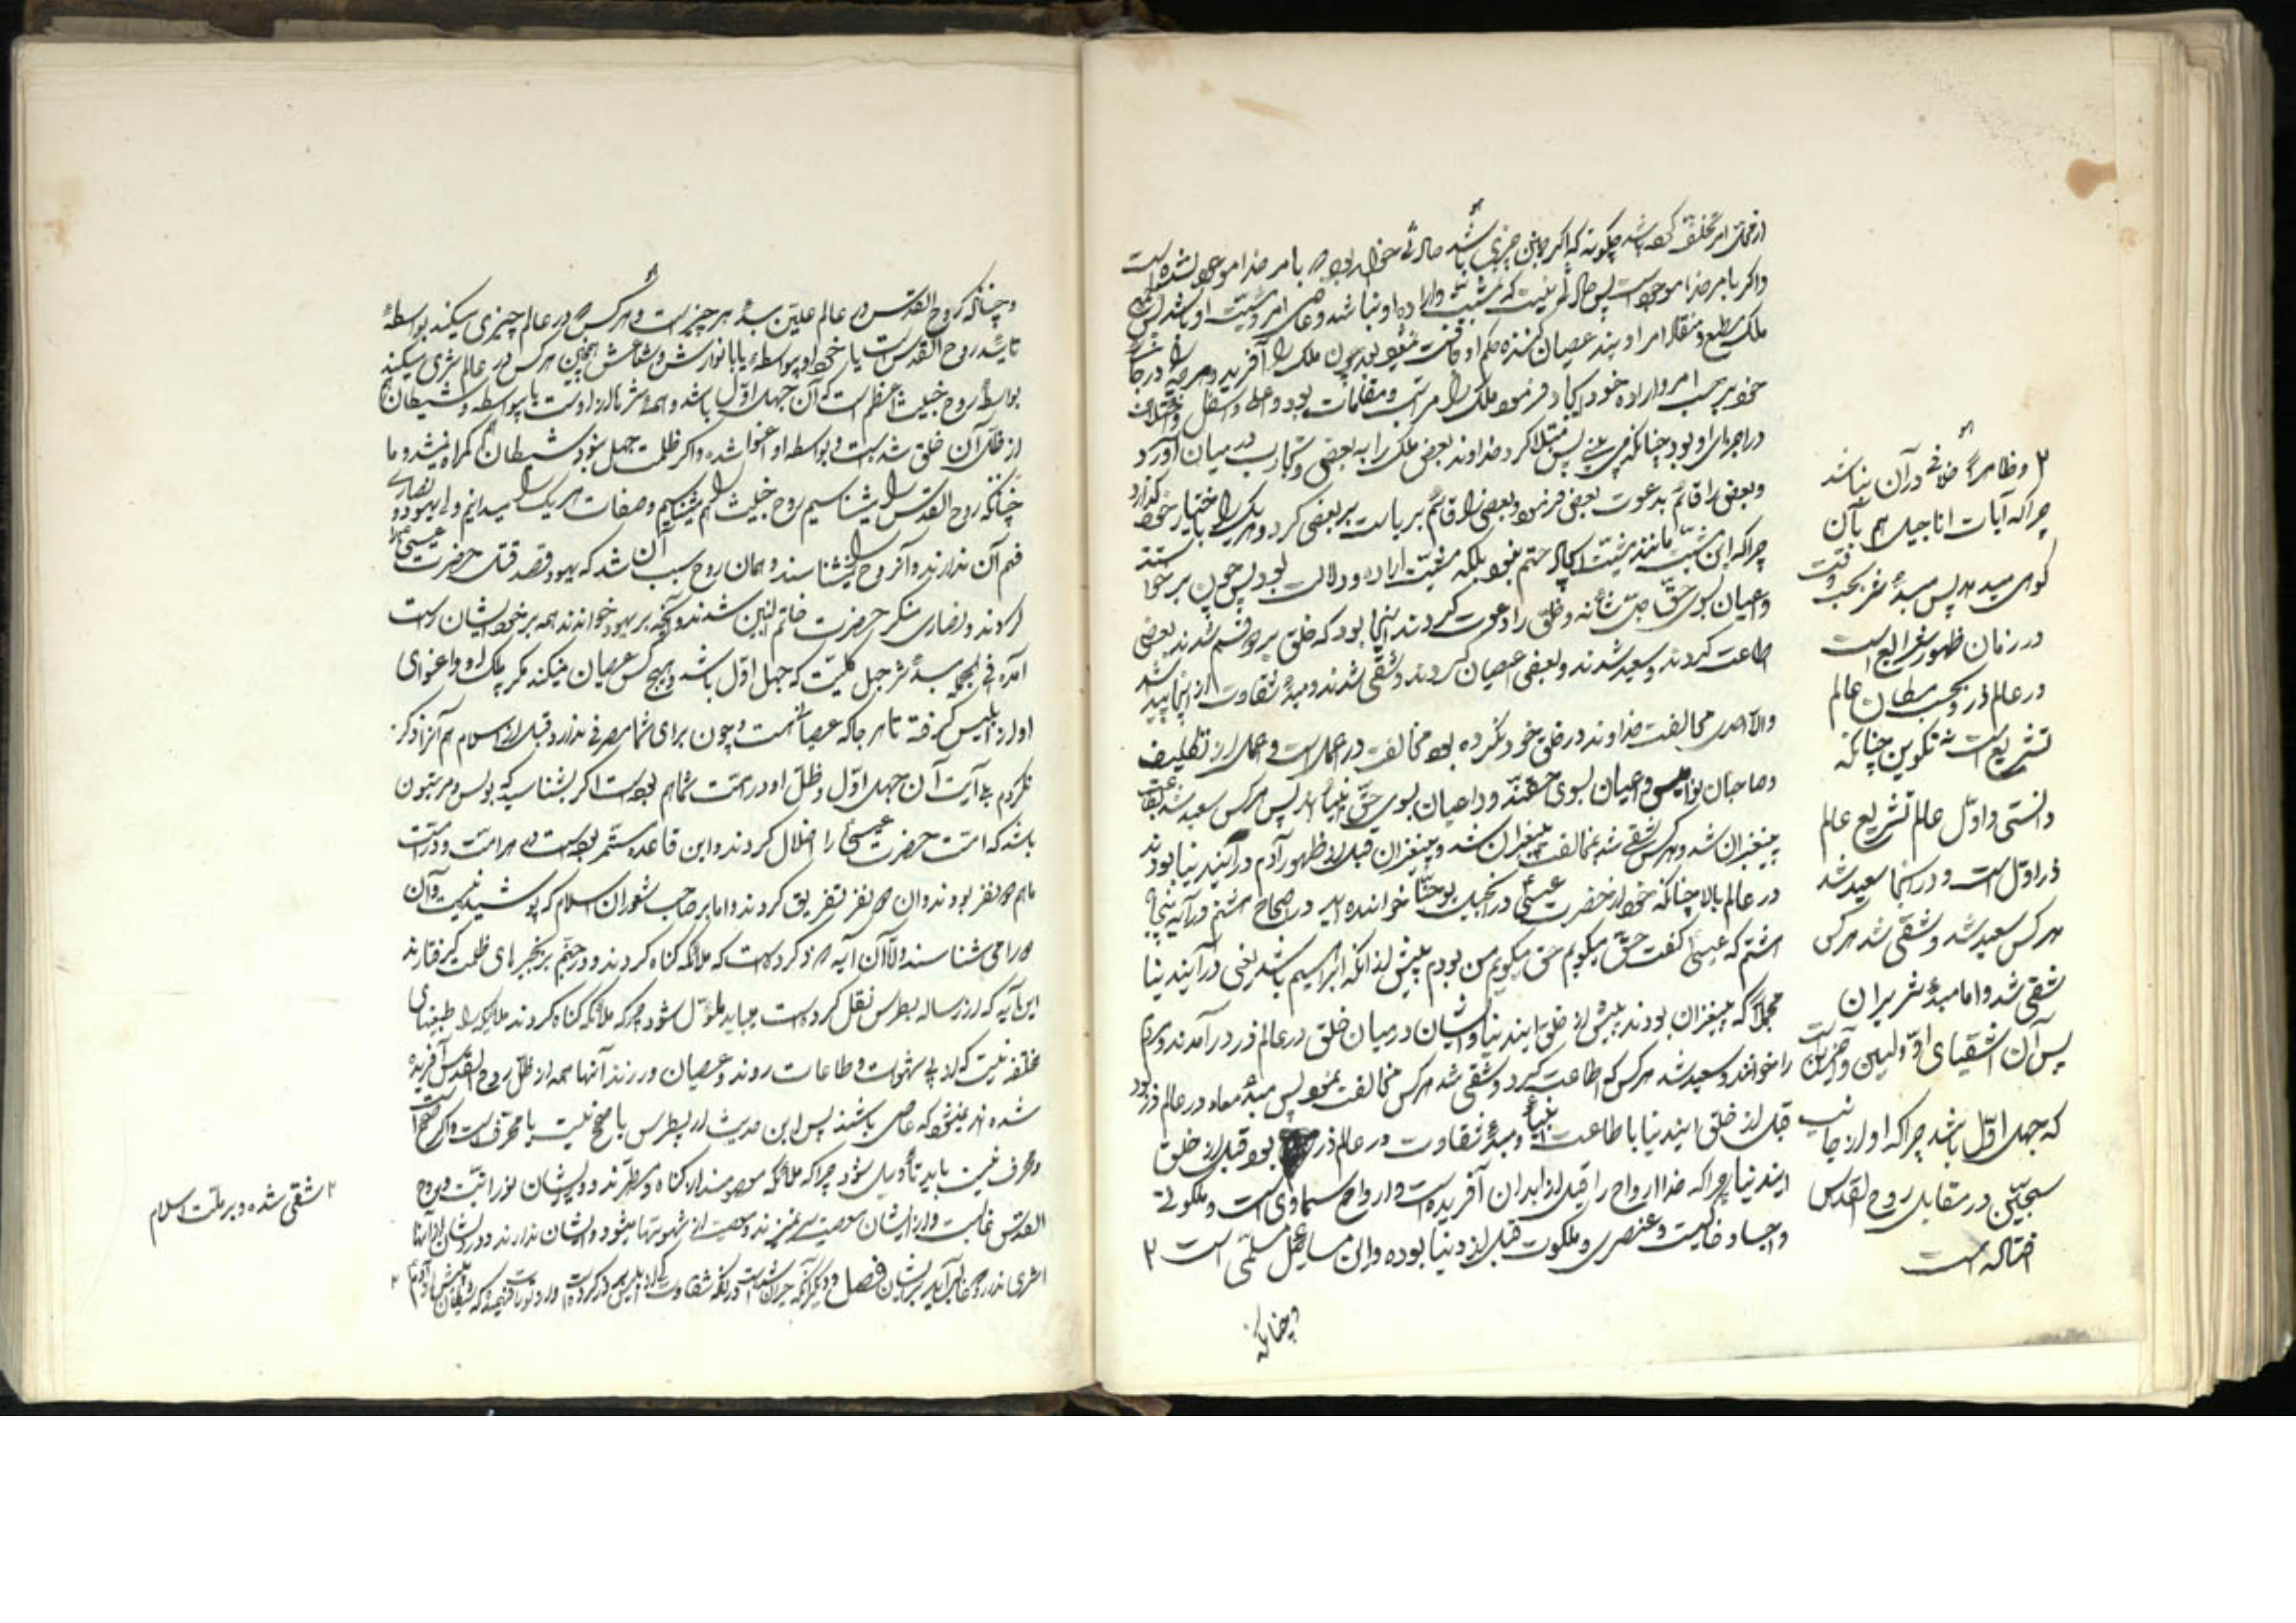 واکر بامر خدا موجود است پس حالتی نیست که مشیت و اراده او نباشد و خلاف امر و مشیت او باشد
ملک مطیع و منقاد امر اویند عصیان کننده حکم او
خود بر حسب امر و اراده خود ایجاد فرمود ملک را مراتب و مقامات بود و اعلی و اسفل
در اجزای او بود چنانکه می بینی پس مبتلا کرد خداوند بعض ملک را به بعضی و تجارب در میان آورد
و بعض را قائم بدعوت بعض فرمود و بعضی را قائم بریاست بر بعضی کرد و هر یک را باختیار خود
چرا که این مشیت مانند مشیت ایجاد حتم نبود بلکه مشیت اراده و دلالت بود پس چون برخواستند
داعیان بسوی حق جل شأنه و خلق را دعوت کردند اینجا بود که خلق بر دو قسم شدند بعضی
اطاعت کردند و سعید شدند و بعضی عصیان کردند و شقی شدند و مبدء شقاوت از اینجا پیدا شد
والا احدی مخالفت خداوند در خلق خود نکرده بود مخالفت در عمل است و عمل از تکلیف
و صاحبان نوامیس و داعیان بسوی حقند و داعیان بسوی حق انبیاء اند پس هرکس سعید شد
پیغمبران شد و هرکس شقی شد بمخالفت پیغمبران شد و پیغمبران قبل از ظهور آدم در این دنیا بودند
در عالم بالا چنانکه خود از حضرت عیسی در انجیل یوحنا خوانده اید در اصحاح هشتم در آیه پنجاه
هشتم که عیسی گفت حق میگویم حق میگویم من بودم پیش از آنکه ابراهیم باشد یعنی در این دنیا
مجملا که پیغمبران بودند پیش از خلق این دنیا و ایشان در میان خلق در عالم ذر در آمدند و مردم
را خواندند و سعید شد هرکس که اطاعت کرد و شقی شد هرکس مخالفت نمود پس مبدء معاد در عالم ذر بود
قبل از خلق این دنیا با طاعت انبیاء و مبدء شقاوت در عالم ذر بود قبل از خلق
این دنیا چرا که خدا ارواح را قبل از ابدان آفریده است و ارواح سماوی است و ملکوتی
و اجساد خاکیست و عنصری و ملکوت قبل از دنیا بوده و این مسایل مسلمی است ۲
وچنانکه
۲ و ظاهرا خلافی در آن نباشد
چرا که آیات اناجیل هم بآن
گواهی میدهد پس مبدء شر بحسب وقت
در زمان ظهور شرایع است
در عالم ذر و بحسب مکان عالم
تشریع است نه تکوین چنانکه
دانستی و اول عالم تشریع عالم
ذر اول است و در آنجا سعید شد
هرکس سعید شد و شقی شد هرکس
شقی شد و اما مبدء شریران
پس آن اشقیای اولین و آخرین است
که جهل اول باشد چرا که او از جانب
سجین در مقابل روح القدس
افتاده است
وچنانکه روح القدس در عالم علیین مبدء هر چیز است و هرکس در عالم چیزی میکند بواسطه
تائید روح القدس است یا خود او بواسطه یا با نوارش و شعاعش همچنین هرکس در عالم شری میکند
بواسطه روح خبیث اعظم است که آن جهل اول باشد و همه شرها از اوست با واسطه و شیطان هم
از ظل آن خلق شده است و بواسطه او اغوا شده و اگر ظلمت جهل نبود شیطان گمراه نمیشد و ما
چنانکه روح القدس را میشناسیم روح خبیث را هم میشناسیم و صفات هر یک را میدانیم ولی یهود و نصاری
فهم آن ندارند و آن روح را نمیشناسند و همان روح سبب آن شد که یهود قصد قتل حضرت عیسی
کردند و نصاری منکر حضرت خاتم النبیین شدند و آنچه بر یهود خواندند همه بر خود ایشان راست
آمده فی الجمله مبدء شر جهل کلیست که جهل اول باشد و هیچ کس عصیان نمیکند مگر بمدد او و اغوای
او از ابلیس گرفته تا هر جا که عصیانست و چون برای شما مصرفی ندارد قبل از اسلام هم آنرا ذکر
نکردم بلی آیت آن جهل اول و ظل او در امت شما هم بوده است اگر بشناسید که بولس و مرتبون
باشد که امت حضرت عیسی را اضلال کردند و این قاعده مستمر بوده است در هر امت و در امت
ما هم دو نفر بودند و آن دو نفر تفریق کردند و اما بر صاحب شعوران اسلام که پوشیده نیست و آن
دو را می شناسند و الا آن آیه که ذکر کرده است که ملائکه گناه کردند و در جهنم بزنجیرهای ظلمت گرفتارند
این آیه که از رساله بطرس نقل کرده است میباید ماول شود چرا که ملائکه گناه نکردند ملائکه را طبیعتهای
مختلفه نیست که از پی شهوات و طاعات روند و عصیان ورزند آنها همه از ظل روح القدس آفریده
شده اند نمیشود که عاصی باشند پس این حدیث از پطرس یا صحیح نیست یا محرف است و اگر صحیح است
و محرف نیست باید تأویل شود چرا که ملائکه معصومند از گناه و مطهرند و در ایشان نورانیت و روح
القدس غالبست و از ایشان معصیت سر نمیزند و معصیت از شهوتها میشود و ایشان ندارند و در ایشان از آنها
اثری ندارد
۲ شقی شده و بر ملت اسلام